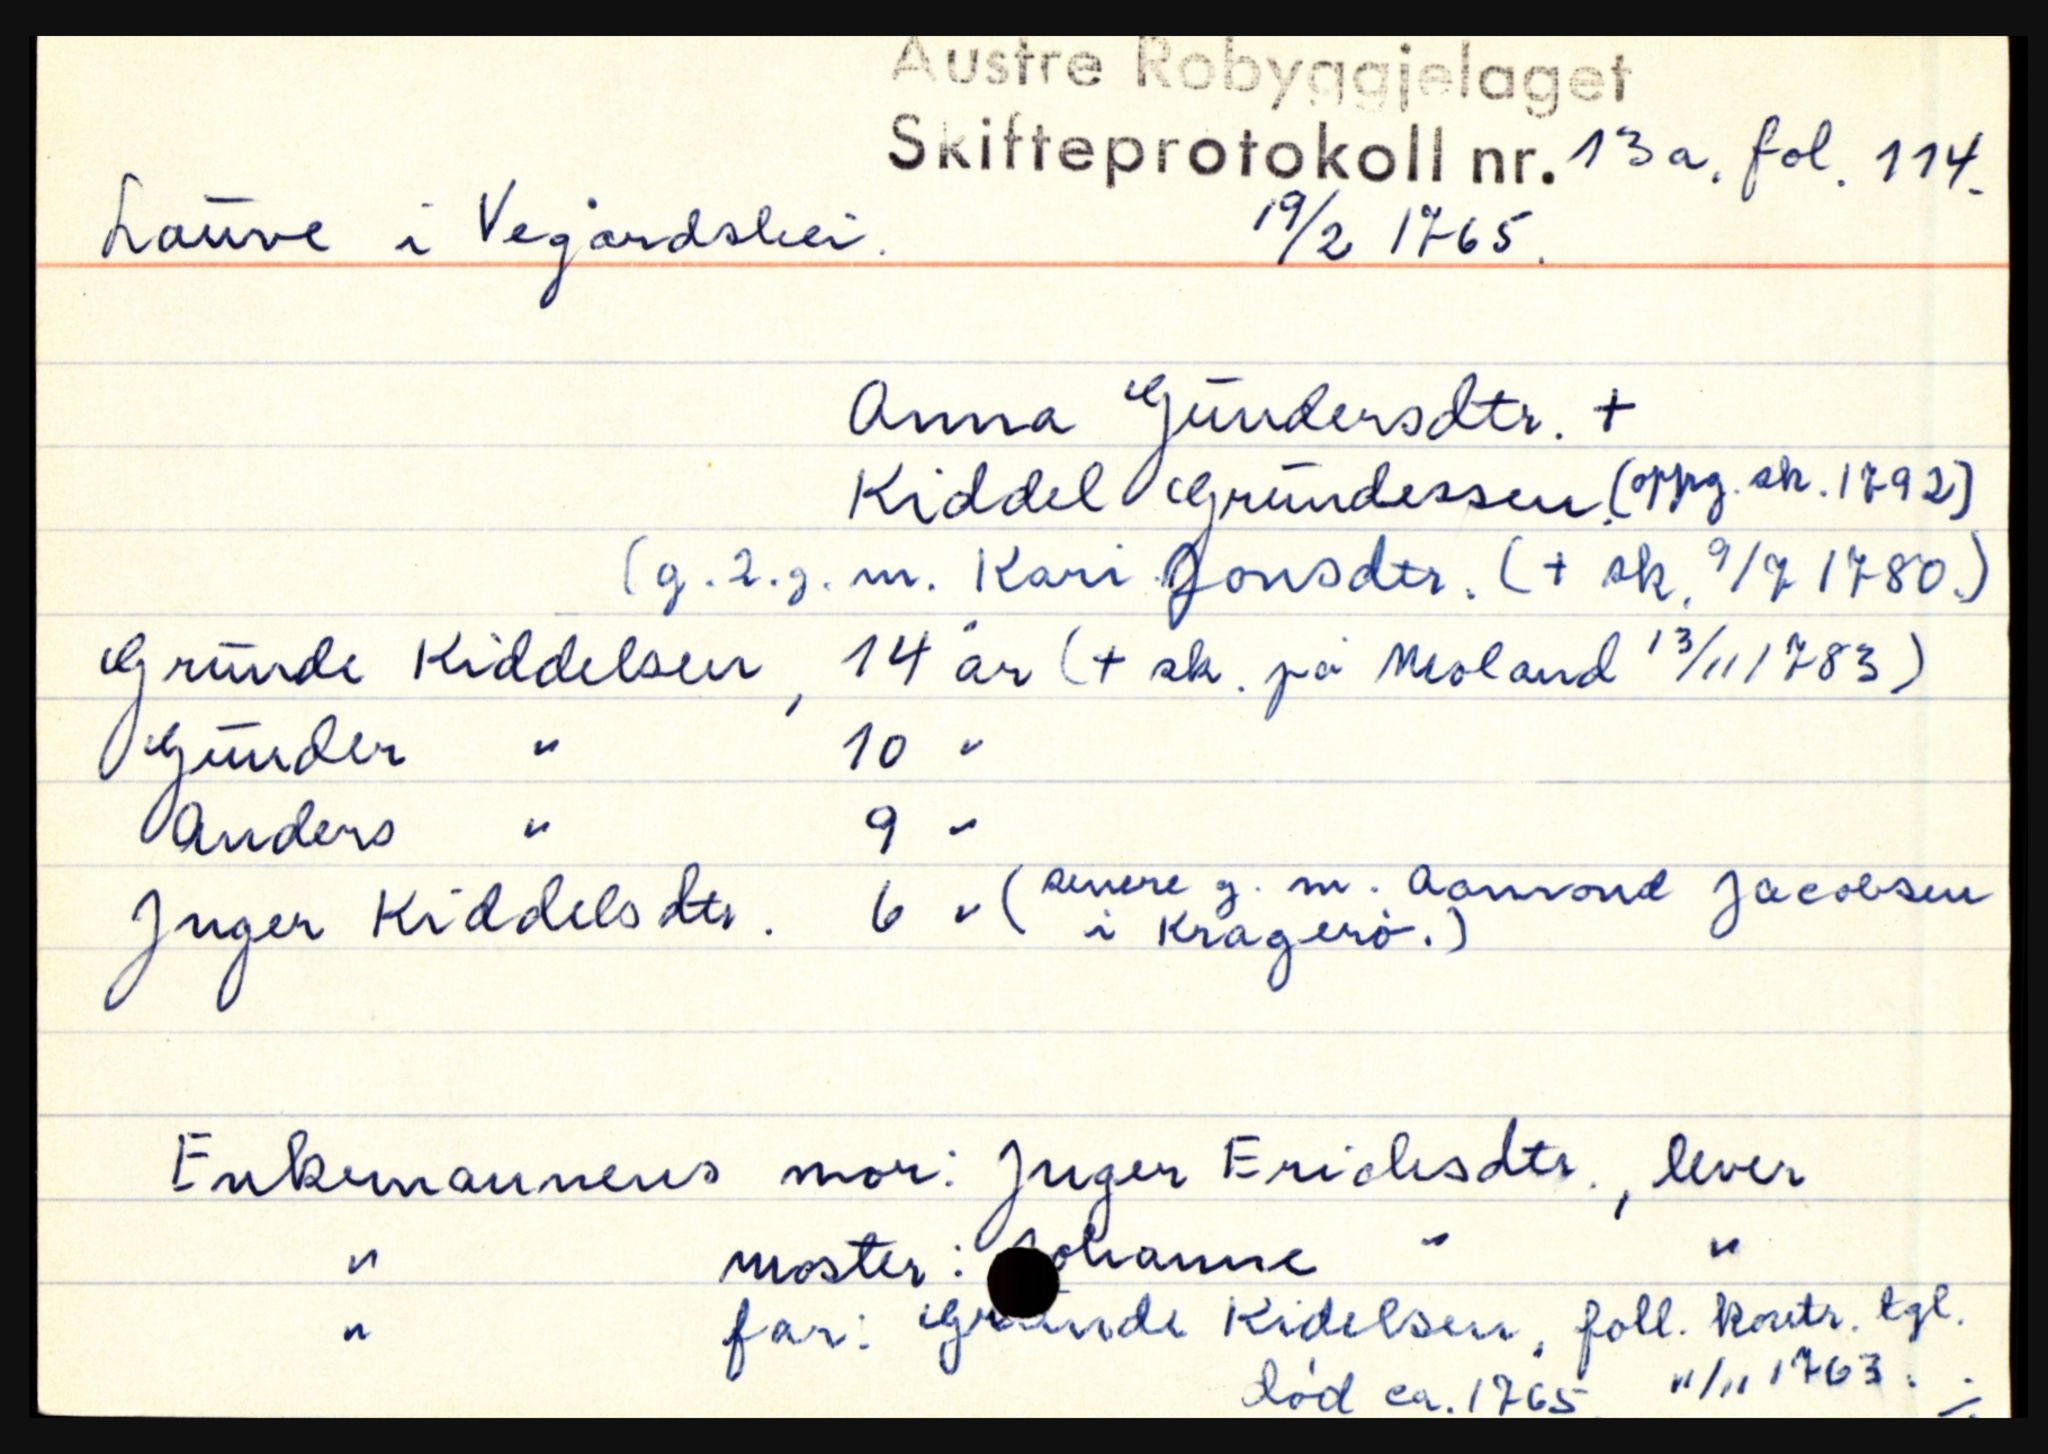 Austre Robyggjelaget
Skifteprotokoll nr. 13a. fol. 114.
Lauve i Vegårdshei. 19/2 1765.
Anna Gundersdtr. +
Kiddel Grundessen. (oppg. sk. 1792)
(g. 2. g. m. Kari Jonsdtr. (+ sk. 9/7 1780.)
Grunde Kiddelsen, 14 år (+ sk. på Moland 13/11 1783)
Gunder " 10 "
Anders " 9 "
Inger Kiddelsdtr. 6 " (senere g. m. Aamond Jacobsen
i Kragerö.)
Enkemannens mor: Inger Erichsdtr., lever
" moster: Johanne " "
" far: Grunde Kidelsen, foll. kontr. tgl.
død ca. 1765 11/11 1763.